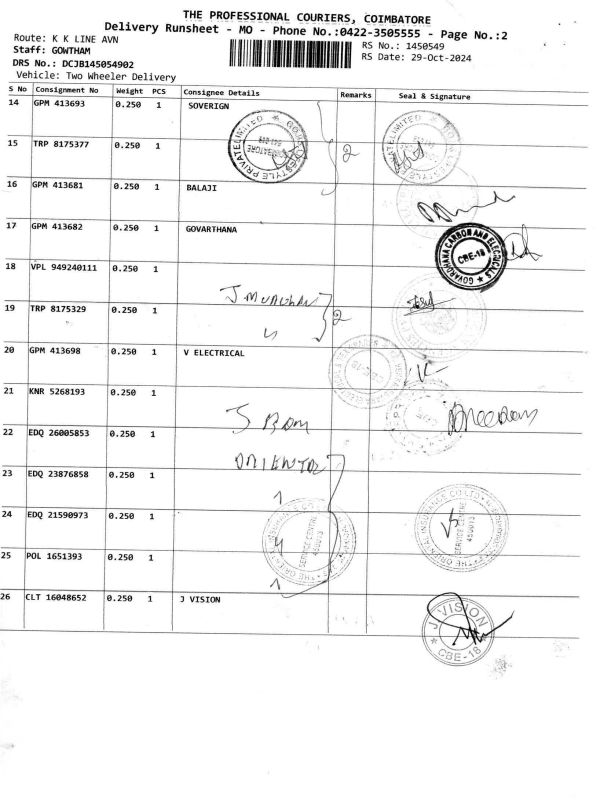 THE PROFESSIONAL COURIERS, COIMBATORE
Delivery Runsheet - MO - Phone No.:0422-3505555 - Page No.:2
Route: K K LINE AVN
RS No.: 1450549
Staff: GOWTHAM
RS Date: 29-Oct-2024
DRS No.: DCJB145054902
Vehicle: Two Wheeler Delivery
S No Consignment No Weight PCS Consignee Details Remarks Seal & Signature
14 GPM 413693 0.250 1 SOVERIGN
15 TRP 8175377 0.250 1 2
16 GPM 413681 0.250 1 BALAJI
17 GPM 413682 0.250 1 GOVARTHANA
GOVARDHANA CARBON AND ELECTRICALS
CBE-18
18 VPL 949240111 0.250 1
19 TRP 8175329 0.250 1 2
20 GPM 413698 0.250 1 V ELECTRICAL
21 KNR 5268193 0.250 1
22 EDQ 26005853 0.250 1
23 EDQ 23876858 0.250 1
24 EDQ 21590973 0.250 1
THE ORIENTAL INSURANCE CO LTD
SERVICE CENTRE
450013
THE ORIENTAL INSURANCE CO LTD
SERVICE CENTRE
450013
25 POL 1651393 0.250 1
26 CLT 16048652 0.250 1 J VISION
J VISION
CBE-18